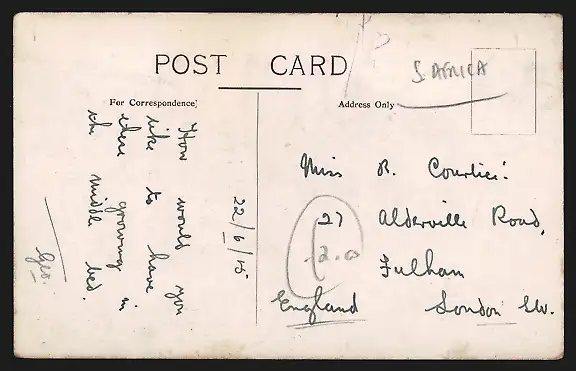 POST CARD
S. AFRICA
For Correspondence.
Address Only
22/6/15
How would you
like to have
these growing in
the middle bed.
Geo.
Miss R. Courtier.
27 Alderville Road,
12.0
Fulham
England London SW.